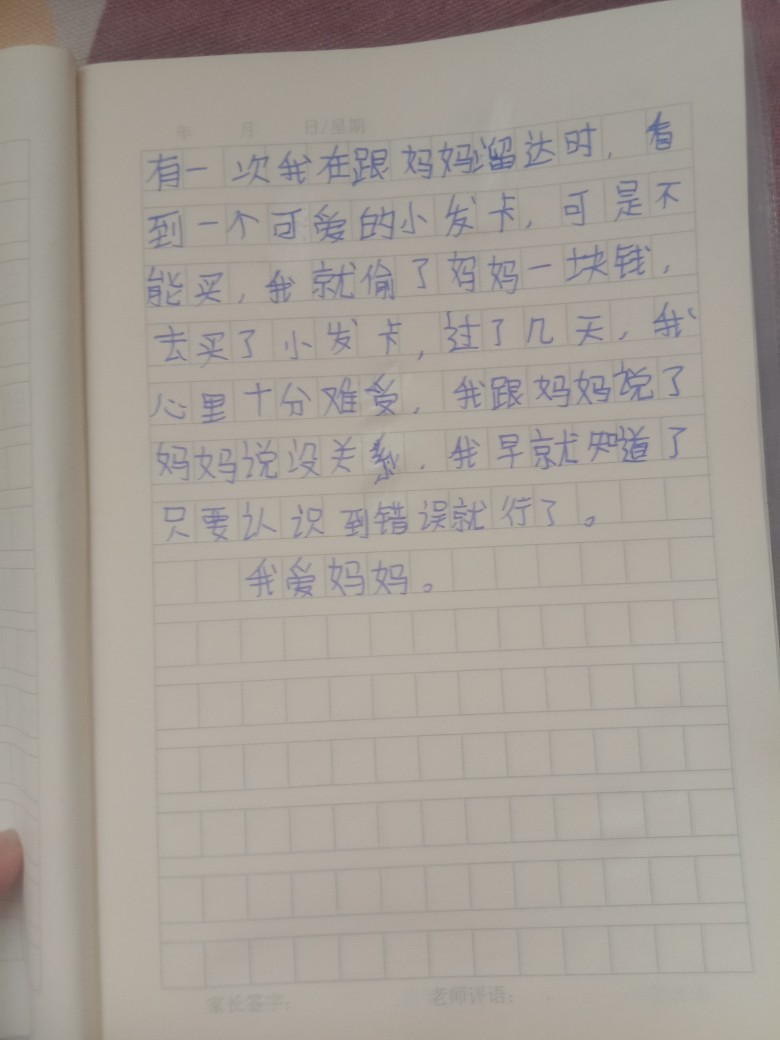 年 月 日/星期
有一次我在跟妈妈溜达时，看
到一个可爱的小发卡，可是不
能买，我就偷了妈妈一块钱，
去买了小发卡，过了几天，我
心里十分难受，我跟妈妈说了
妈妈说没关系，我早就知道了
只要认识到错误就行了。
我爱妈妈。
家长签字： 老师评语：